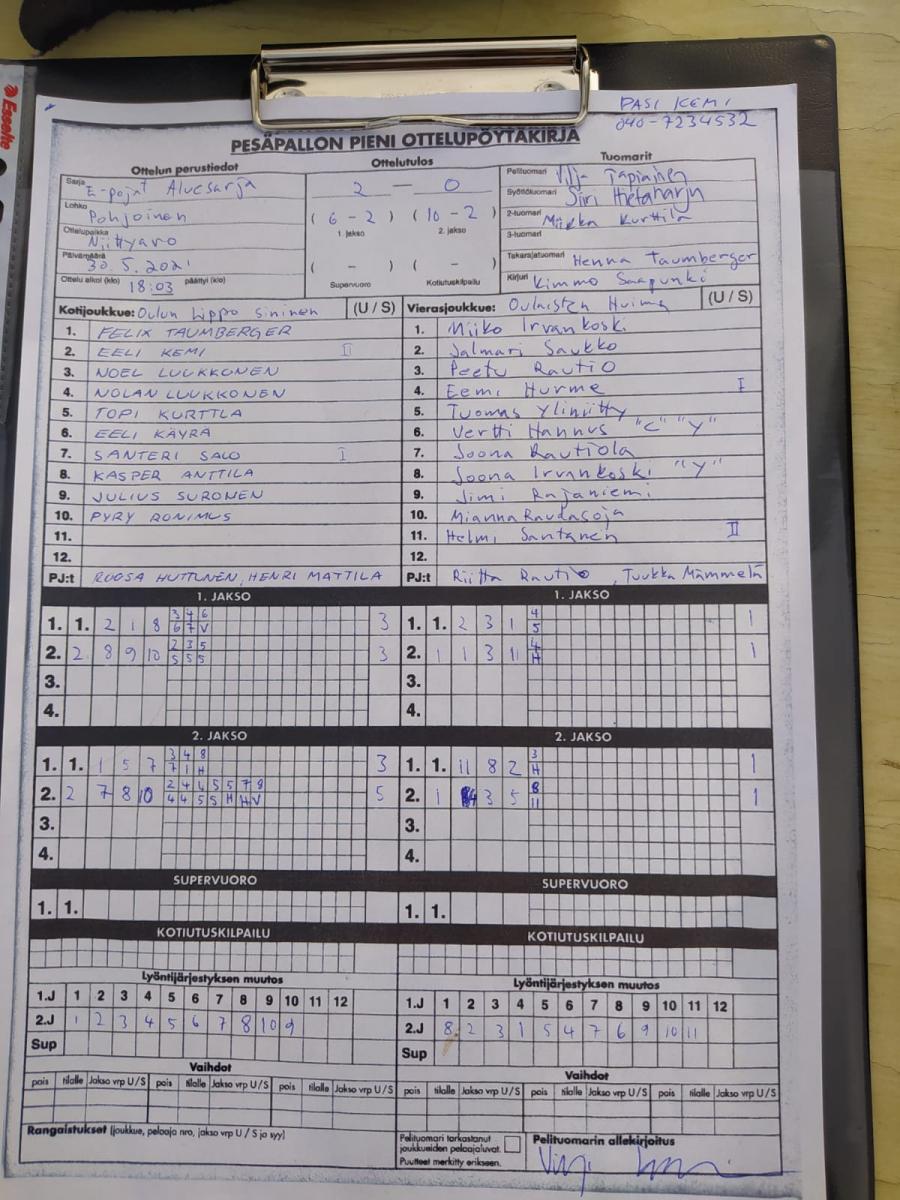 Esselte
PASI KEMI
040-7234532
PESÄPALLON PIENI OTTELUPÖYTÄKIRJA
Ottelun perustiedot
Ottelutulos
Tuomarit
Sarja E-pojat Aluesarja
2 - 0
Pelituomari Tapiainen
Lohko Pohjoinen
(6 - 2) (10 - 2)
Syöttötuomari Siri Hietaharju
1. jakso 2. jakso
2-tuomari Miikka Kurttila
Ottelupaikka Niittyaro
3-tuomari
Päivämäärä 30.5.2021
( - ) ( - )
Takarajatuomari Henna Taumberger
Ottelu alkoi (klo) 18:03 päättyi (klo)
Supervuoro Kotiutuskilpailu
Kirjuri Kimmo Saapunki
Kotijoukkue: Oulun Lippo Sininen (U / S)
1. FELIX TAUMBERGER
2. EELI KEMI II
3. NOEL LUUKKONEN
4. NOLAN LUUKKONEN
5. TOPI KURTTLA
6. EELI KÄYRÄ
7. SANTERI SALO I
8. KASPER ANTTILA
9. JULIUS SURONEN
10. PYRY RONIMUS
11.
12.
PJ:t ROOSA HUTTUNEN, HENRI MATTILA
Vierasjoukkue: Oulaisten Huima (U / S)
1. Miiko Irvankoski
2. Jalmari Saukko
3. Peetu Rautio
4. Eemi Hurme I
5. Tuomas Yliniitty
6. Vertti Hannus "C" "Y"
7. Joona Rautiola
8. Joona Irvankoski "Y"
9. Jimi Rajaniemi
10. Mianna Raudasoja
11. Helmi Santanen II
12.
PJ:t Riitta Rautio, Tuukka Mämmelä
1. JAKSO
3 4 6
1. 1. 2 1 8 6 7 V 3
2 3 5
2. 2 8 9 10 5 5 5 3
3.
4.
1. JAKSO
4
1. 1. 2 3 1 5 1
4
2. 1 1 3 11 H 1
3.
4.
2. JAKSO
3 4 8
1. 1. 1 5 7 7 1 H 3
2 4 4 5 5 7 9
2. 2 7 8 10 4 4 5 5 H H V 5
3.
4.
2. JAKSO
3
1. 1. 11 8 2 H 1
8
2. 1 3 5 11 1
3.
4.
SUPERVUORO
1. 1.
SUPERVUORO
1. 1.
KOTIUTUSKILPAILU
KOTIUTUSKILPAILU
Lyöntijärjestyksen muutos
1.J 1 2 3 4 5 6 7 8 9 10 11 12
2.J 1 2 3 4 5 6 7 8 10 9
Sup
Lyöntijärjestyksen muutos
1.J 1 2 3 4 5 6 7 8 9 10 11 12
2.J 8 2 3 1 5 4 7 6 9 10 11
Sup
Vaihdot
pois tilalle Jakso vrp U/S pois tilalle Jakso vrp U/S pois tilalle Jakso vrp U/S
Vaihdot
pois tilalle Jakso vrp U/S pois tilalle Jakso vrp U/S pois tilalle Jakso vrp U/S
Rangaistukset (joukkue, pelaaja nro, jakso vrp U / S ja syy)
Pelituomari tarkastanut
joukkueiden pelaajaluvat.
Puutteet merkitty erikseen.
Pelituomarin allekirjoitus